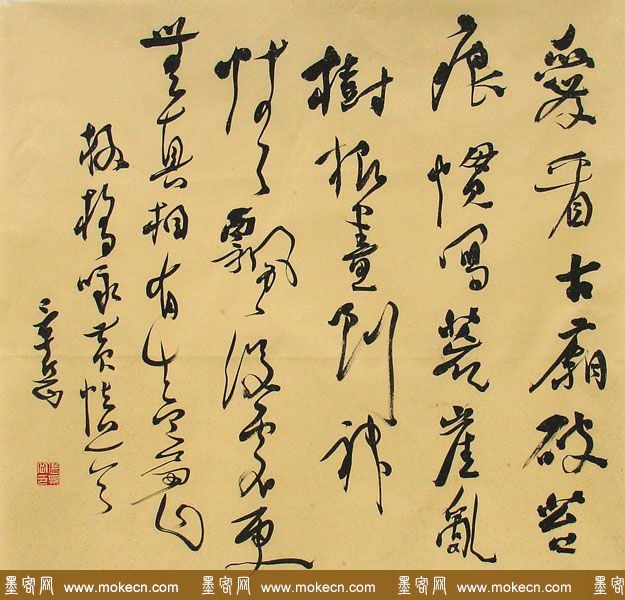 愛看古廟破苔
痕慣寫荒崖亂
樹根畫到神
情飄沒處更
無真相有真魂
板橋咏黄慎
墨客网 www.mokecn.com 墨客网 www.mokecn.com 墨客网 www.mokecn.com